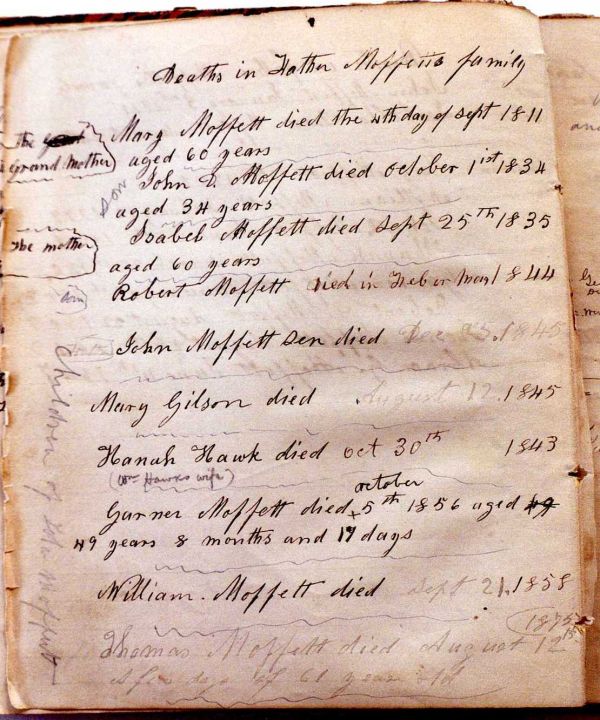 Deaths in Father Moffetts family
the grand mother
Mary Moffett died the 4th day of Sept 1811
aged 60 years
son
John D. Moffett died october 1ist 1834
aged 34 years
the mother
Isabel Moffett died Sept 25th 1835
aged 60 years
son
Robert Moffett died in Feb or may 1844
John Moffett Sen died Dec 23. 1845
Mary Gilson died August 12. 1845
Hanah Hawk died oct 30th 1843
(Wm Hawks wife)
october
Garner Moffett died 5th 1856 aged 49
49 years 8 months and 17 days
William. Moffett died Sept 21, 1858
1875
Thomas Moffett died August 12th
A few days of 61 year old
Children of John Moffett